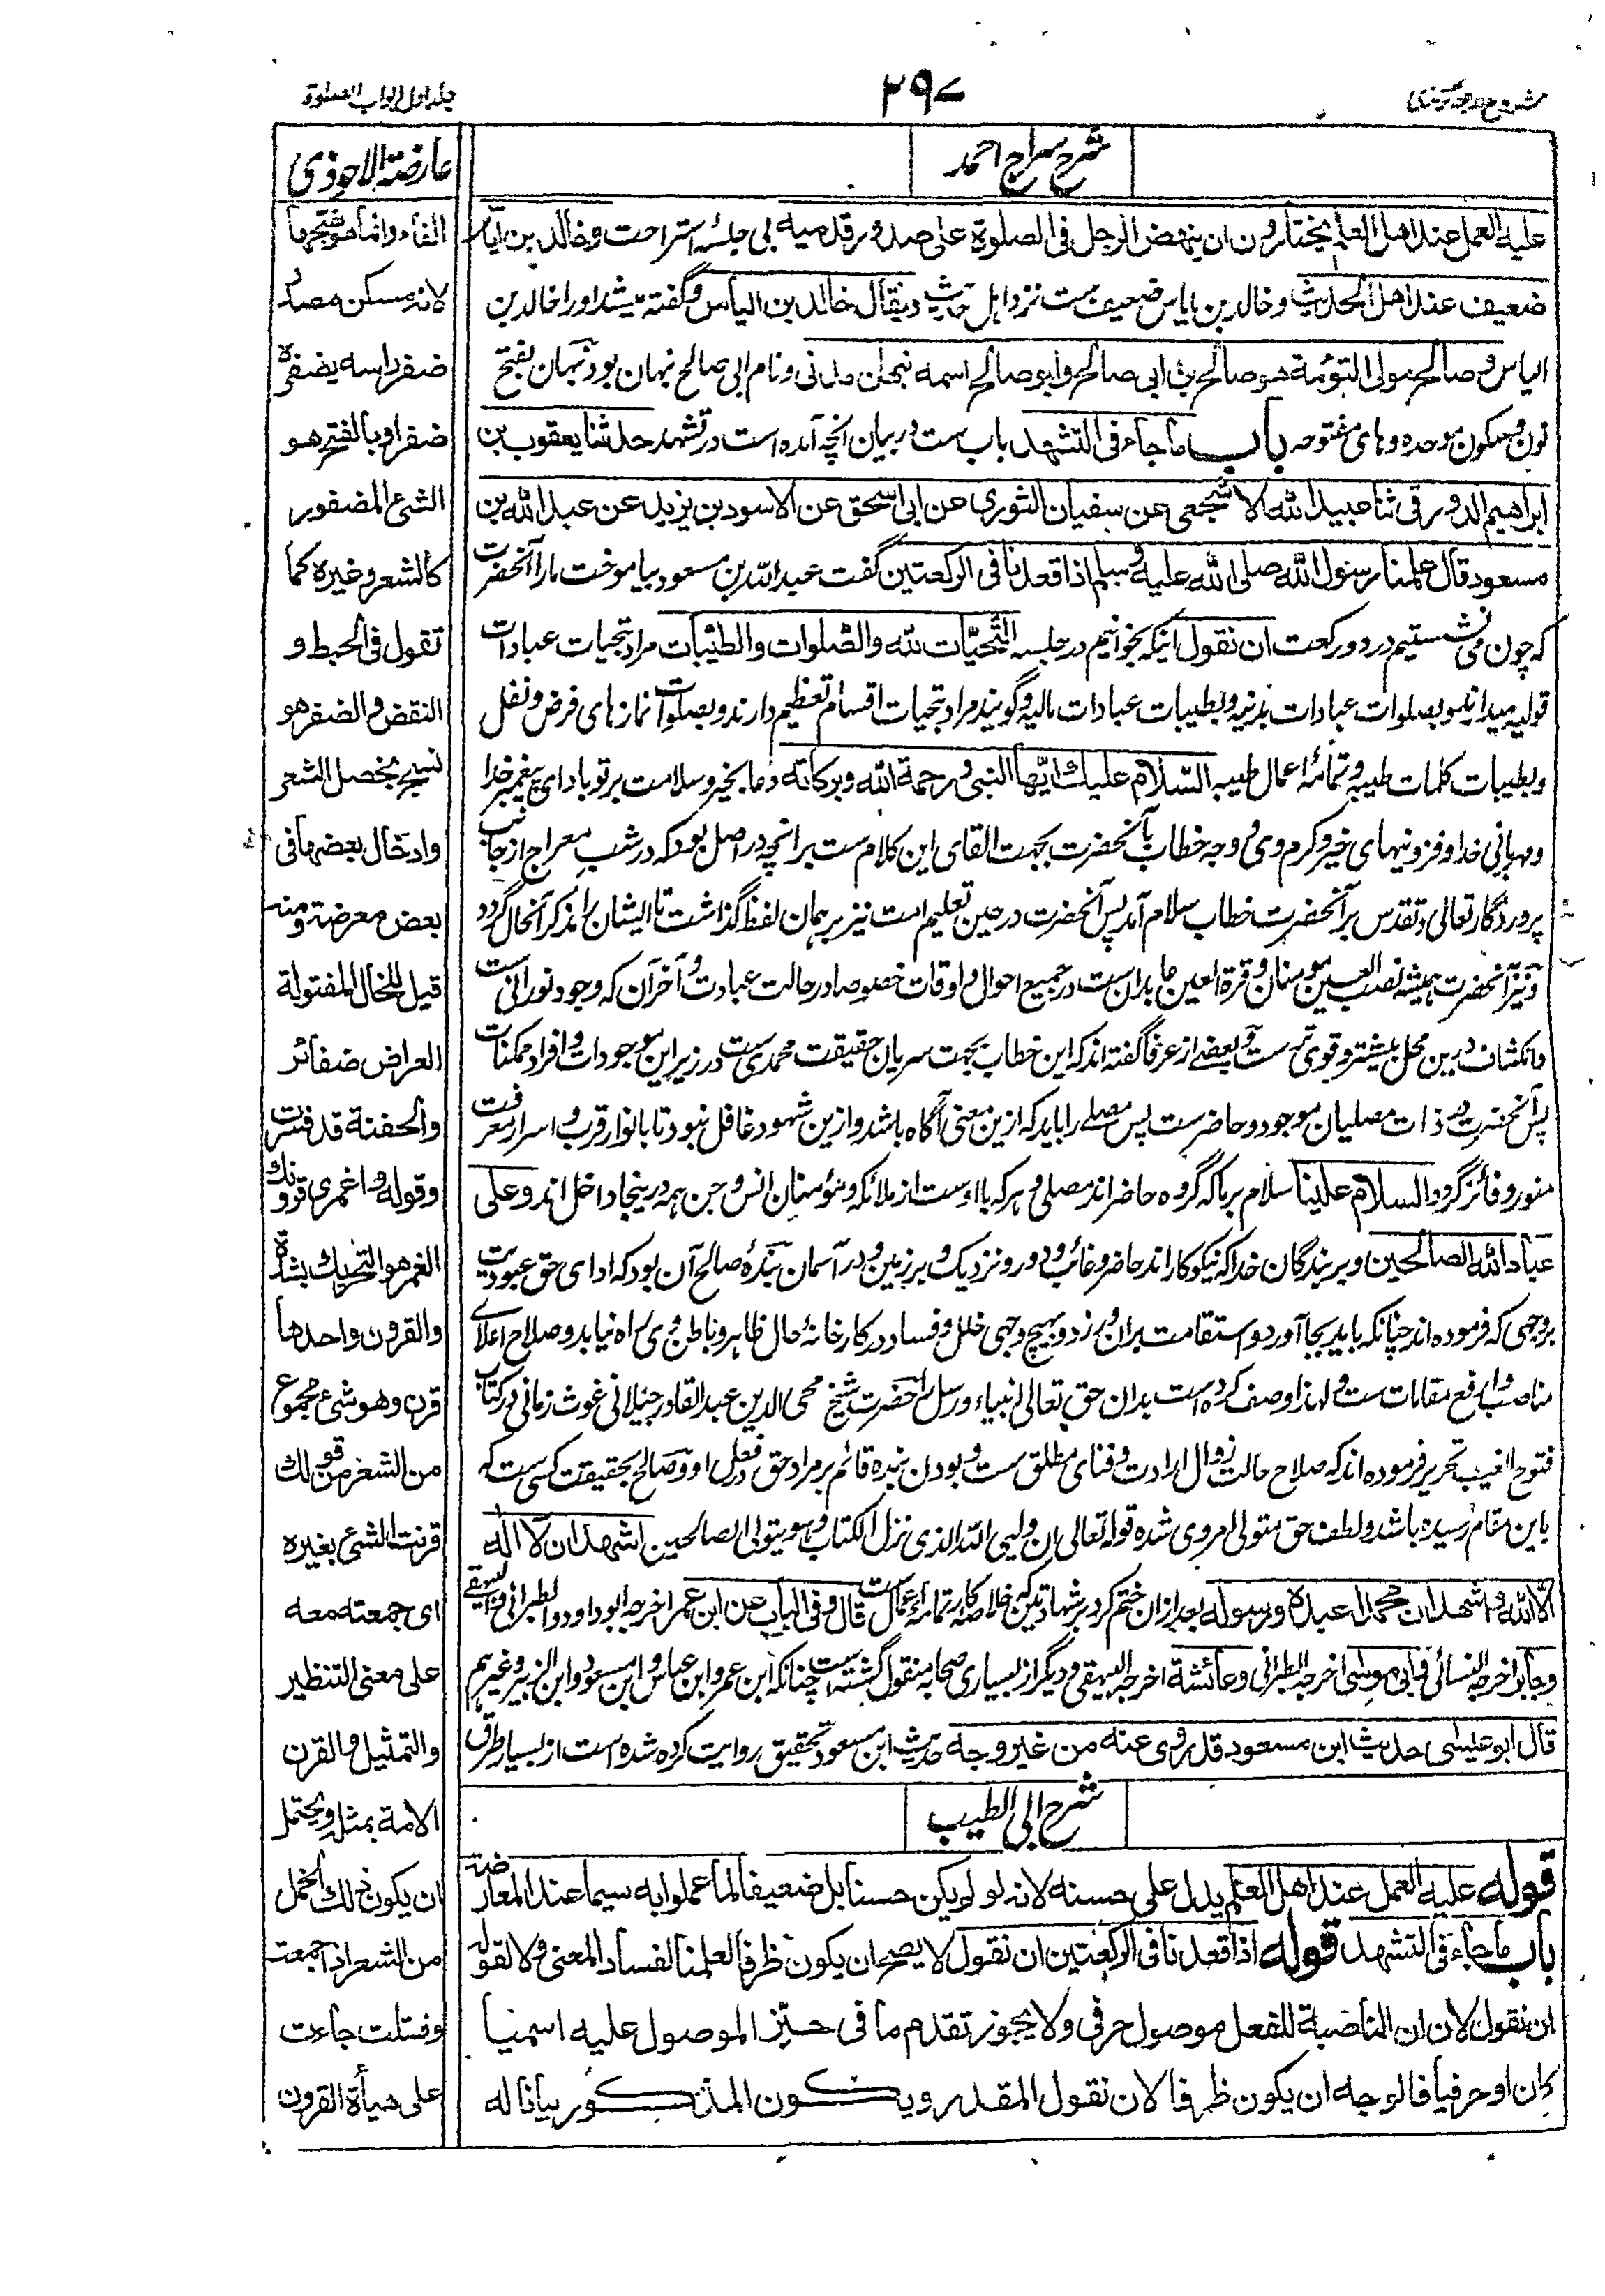 شرح اربعه ترمذی
۲۹۷
جلد اول ابواب الصلوة
شرح سراج احمد
علیه العمل عند اهل العلم یختارون ان ینهض الرجل فی الصلوة علی صدور قدمیه بی جلسهٔ استراحت وخالد بن ایاس
ضعیف عند اهل الحدیث وخالد بن ایاس ضعیف ست نزد اهل حدیث ویقال خالد بن الیاس وگفته میشد اورا خالد بن
الیاس وصالح مولی التوئمة هو صالح بن ابی صالح وابو صالح اسمه نبهان مدنی ونام ابی صالح نبهان بود نبهان بفتح
نون وسکون موحده وهای مفتوحه باب ماجاء فی التشهد باب ست در بیان آنچه آمده است در تشهد حدثنا یعقوب بن
ابراهیم الدورقی ثنا عبید الله الاشجعی عن سفیان الثوری عن ابی اسحق عن الاسود بن یزید عن عبد الله بن
مسعود قال علمنا رسول الله صلی الله علیه وسلم اذا قعدنا فی الرکعتین گفت عبد الله بن مسعود بیاموخت مارا آنحضرت
که چون می نشستیم در دو رکعت ان نقول اینکه بخوانیم در جلسه التَّحیّات لله والصّلوات والطیّبات مراد بتحیات عبادات
قولیه میدانند وبصلوات عبادات بدنیه وبطیبات عبادات مالیه وگویند مراد بتحیات اقسام تعظیم دارند وبصلوات نمازهای فرض ونفل
وبطیبات کلمات طیبه وتمامهٔ اعمال طیبه السّلام علیك ایّها النبی ورحمة الله وبرکاته دعا بخیر وسلامت بر تو باد ای پیغمبر خدا
ومهربانی خدا وفزونیهای خیر وکرم وی ووجه خطاب بآنحضرت بجهت القای این کلام ست برانچه در اصل بود که در شب معراج از جانب
پروردگار تعالی وتقدس بر آنحضرت خطاب سلام آمد پس آنحضرت در حین تعلیم امت نیز بر همان لفظ گذاشت تا ایشان را مذکر آنحال گردد
ونیز آنحضرت همیشه نصب العین مومنان وقرة العین عابدان است در جمیع احوال واوقات خصوصا در حالت عبادت وآخر آن که وجود نورانیت
وانکشاف درین محل بیشتر وقوی تر ست وبعضے از عرفا گفته اند که این خطاب بجهت سریان حقیقت محمدی ست در زیر این موجودات وافراد ممکنات
پس آنحضرت در ذات مصلیان موجود وحاضر ست پس مصلے را باید که ازین معنی آگاه باشد وازین شهود غافل نبود تا بانوار قرب واسرار معرفت
منور وفائز گردد السلام علینا سلام بر ما که گروه حاضر اند مصلی وهر که با اوست از ملائکه ومؤمنان انس وجن همه درینجا داخل اند وعلی
عباد الله الصالحین وبر بندگان خدا که نیکو کار اند حاضر وغائب ودور ونزدیک وبر زمین ودر آسمان بندهٔ صالح آن بود که ادای حق عبودیت
بروجهی که فرموده اند چنانکه باید بجا آورد واستقامت بران ورزد وهیچ وجهی خلل وفساد در کارخانهٔ حال ظاهر وباطن وی راه نیابد وصلاح اعلای
مناصب وارفع مقامات ست ولهذا وصف کرده است بدان حق تعالی انبیاء ورسل را حضرت شیخ محی الدین عبد القادر جیلانی غوث زمانی در کتاب
فتوح الغیب تحریر فرموده اند که صلاح حالت زوال ارادت وفنای مطلق ست وبودن بنده قائم بر مراد حق وفعل او وصالح بحقیقت کسی ست که
باین مقام رسیده باشد ولطف حق متولی امر وی شده قوله تعالی ان ولیی الله الذی نزل الکتاب وهو یتولی الصالحین اشهد ان لا اله
الا الله واشهد ان محمدا عبده ورسوله بعد ازان ختم کرد بر شهادتین که خلاصهٔ کار وتمامهٔ اعمال ست قال وفی الباب عن ابن عمر اخرجه ابو داود والطبرانی والبیهقے
وجابر اخرجه النسائی وابی موسی اخرجه الطبرانی وعائشة اخرجه البیهقی ودیگر از بسیاری صحابه منقول گشته است چنانکه ابن عمر وابن عباس وابن مسعود وابن الزبیر وغیرهم
قال ابو عیسی حدیث ابن مسعود قد روی عنه من غیر وجه حدیث ابن مسعود تحقیق روایت کرده شده است از بسیار طرق
شرح ابی الطیب
قوله علیه العمل عند اهل العلم یدل علی حسنه لانه لو لم یکن حسنا بل ضعیفا لما عملوا به سیما عند المعارضة
باب ماجاء فی التشهد قوله اذا قعدنا فی الرکعتین ان نقول لا یصح ان یکون ظرفا لعلمنا لفساد المعنی ولا لقوله
ان نقول لان ان الناصبة للفعل موصول حرفی ولا یجوز تقدم ما فی حیّز الموصول علیه اسمیا
کان او حرفیا فالوجه ان یکون ظرفا لان نقول المقدر ویکون المذکور بیانا له
عارضة الاحوذی
الفاء وانما هو بفتحها
لانه مسکن مصدر
ضفر راسه یضفره
ضفرا وبالفتح هو
الشئ المضفور
کالشعر وغیره کما
تقول فی الحبط و
النقض والضفر هو
نسیج بخصل الشعر
وادخال بعضها فی
بعض معرضة ومنه
قیل للحبال المفتولة
العراض ضفائر
والحفنة قد فسرت
وقوله واغمزی قرونك
الغمز هو التحریك بشدة
والقرون واحدها
قرن وهو شئ مجموع
من الشعر من قولك
قرنت الشئ بغیره
ای جمعته معه
علی معنی التنظیر
والتمثیل والقرن
الامة بمثله ویحتمل
ان یکون ذلك الخصل
من الشعر اذا جمعت
وفتلت جاءت
علی هیأة القرون